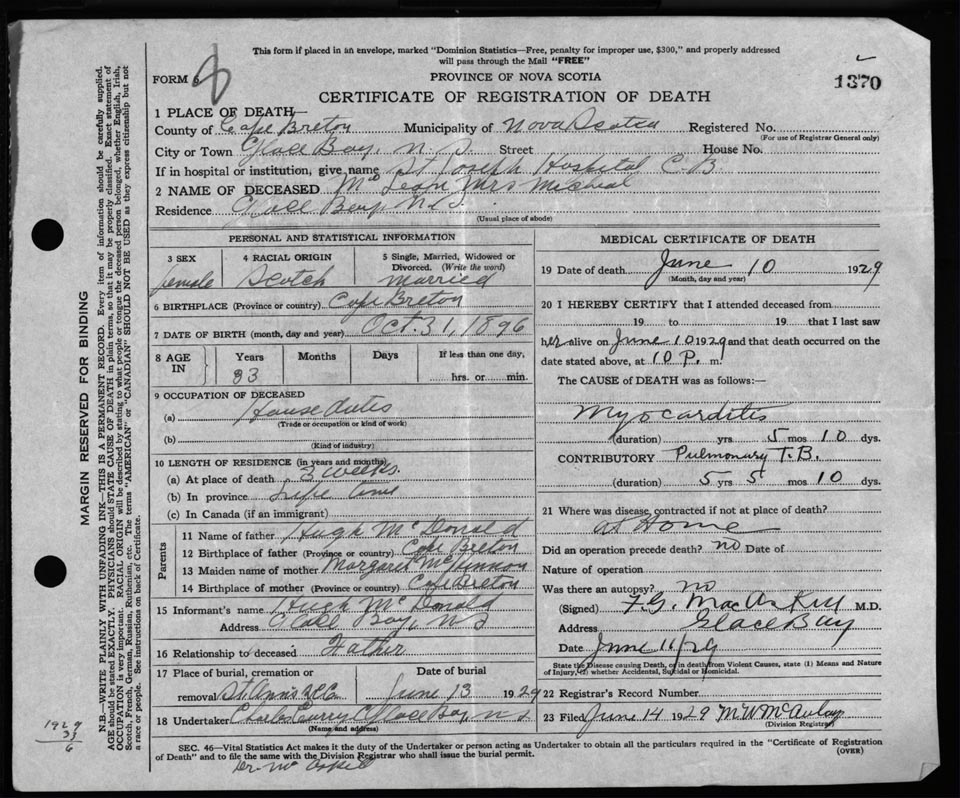 This form if placed in an envelope, marked "Dominion Statistics—Free, penalty for improper use, $300," and properly addressed
will pass through the Mail "FREE"
FORM 6
8
PROVINCE OF NOVA SCOTIA
1370
CERTIFICATE OF REGISTRATION OF DEATH
1 PLACE OF DEATH—
County of Cape Breton Municipality of Nova Scotia Registered No.
(For use of Registrar General only)
City or Town Glace Bay, N.S. Street House No.
If in hospital or institution, give name St Joseph Hospital C.B.
2 NAME OF DECEASED Mc Lean, Mrs Micheal
Residence Glace Bay N.S.
(Usual place of abode)
PERSONAL AND STATISTICAL INFORMATION
3 SEX 4 RACIAL ORIGIN 5 Single, Married, Widowed or
Divorced. (Write the word)
female Scotch Married
6 BIRTHPLACE (Province or country) Cape Breton
7 DATE OF BIRTH (month, day and year) Oct. 31, 1896
8 AGE IN Years Months Days If less than one day,
33 hrs. or min.
9 OCCUPATION OF DECEASED
(a) House duties
(Trade or occupation or kind of work)
(b)
(Kind of industry)
10 LENGTH OF RESIDENCE (in years and months)
(a) At place of death 3 weeks.
(b) In province Life time
(c) In Canada (if an immigrant)
Parents
11 Name of father Hugh Mc Donald
12 Birthplace of father (Province or country) Cape Breton
13 Maiden name of mother Margaret McKinnon
14 Birthplace of mother (Province or country) Cape Breton
15 Informant's name Hugh Mc Donald
Address Glace Bay, N.S
16 Relationship to deceased Father
17 Place of burial, cremation or Date of burial
removal St Ann's June 13 1929
18 Undertaker Charles Curry Glace Bay N.S
(Name and address)
MEDICAL CERTIFICATE OF DEATH
19 Date of death June 10 1929
(Month, day and year)
20 I HEREBY CERTIFY that I attended deceased from
19 to 19 that I last saw
her alive on June 10 1929 and that death occurred on the
date stated above, at 10 P. m.
The CAUSE of DEATH was as follows:—
Myocarditis
(duration) yrs 5 mos 10 dys.
CONTRIBUTORY Pulmonary T.B.
(duration) 5 yrs 5 mos 10 dys.
21 Where was disease contracted if not at place of death?
at Home
Did an operation precede death? no Date of
Nature of operation
Was there an autopsy? no
(Signed) F.G. MacAskill M.D.
Address Glace Bay
Date June 11/29
State the Disease causing Death, or in death from Violent Causes, state (1) Means and Nature
of Injury, (2) whether Accidental, Suicidal or Homicidal.
22 Registrar's Record Number
23 Filed June 14 1929 M W McAulay
(Division Registrar)
SEC. 46—Vital Statistics Act makes it the duty of the Undertaker or person acting as Undertaker to obtain all the particulars required in the "Certificate of Registration
of Death" and to file the same with the Division Registrar who shall issue the burial permit.
(OVER)
Dr. Mc Askill
MARGIN RESERVED FOR BINDING
N.B.—WRITE PLAINLY WITH UNFADING INK—THIS IS A PERMANENT RECORD. Every item of information should be carefully supplied.
AGE should be stated EXACTLY. PHYSICIANS should STATE CAUSE OF DEATH in plain terms, so that it may be properly classified. Exact statement of
OCCUPATION is very important. RACIAL ORIGIN will be described by stating to what people or tongue the deceased person belonged, whether English, Irish,
Scotch, French, German, Russian, Ruthenian, etc. The terms "AMERICAN" or "CANADIAN" SHOULD NOT BE USED as they express citizenship but not
a race or people. See instructions on back of Certificate.
1929
33
6